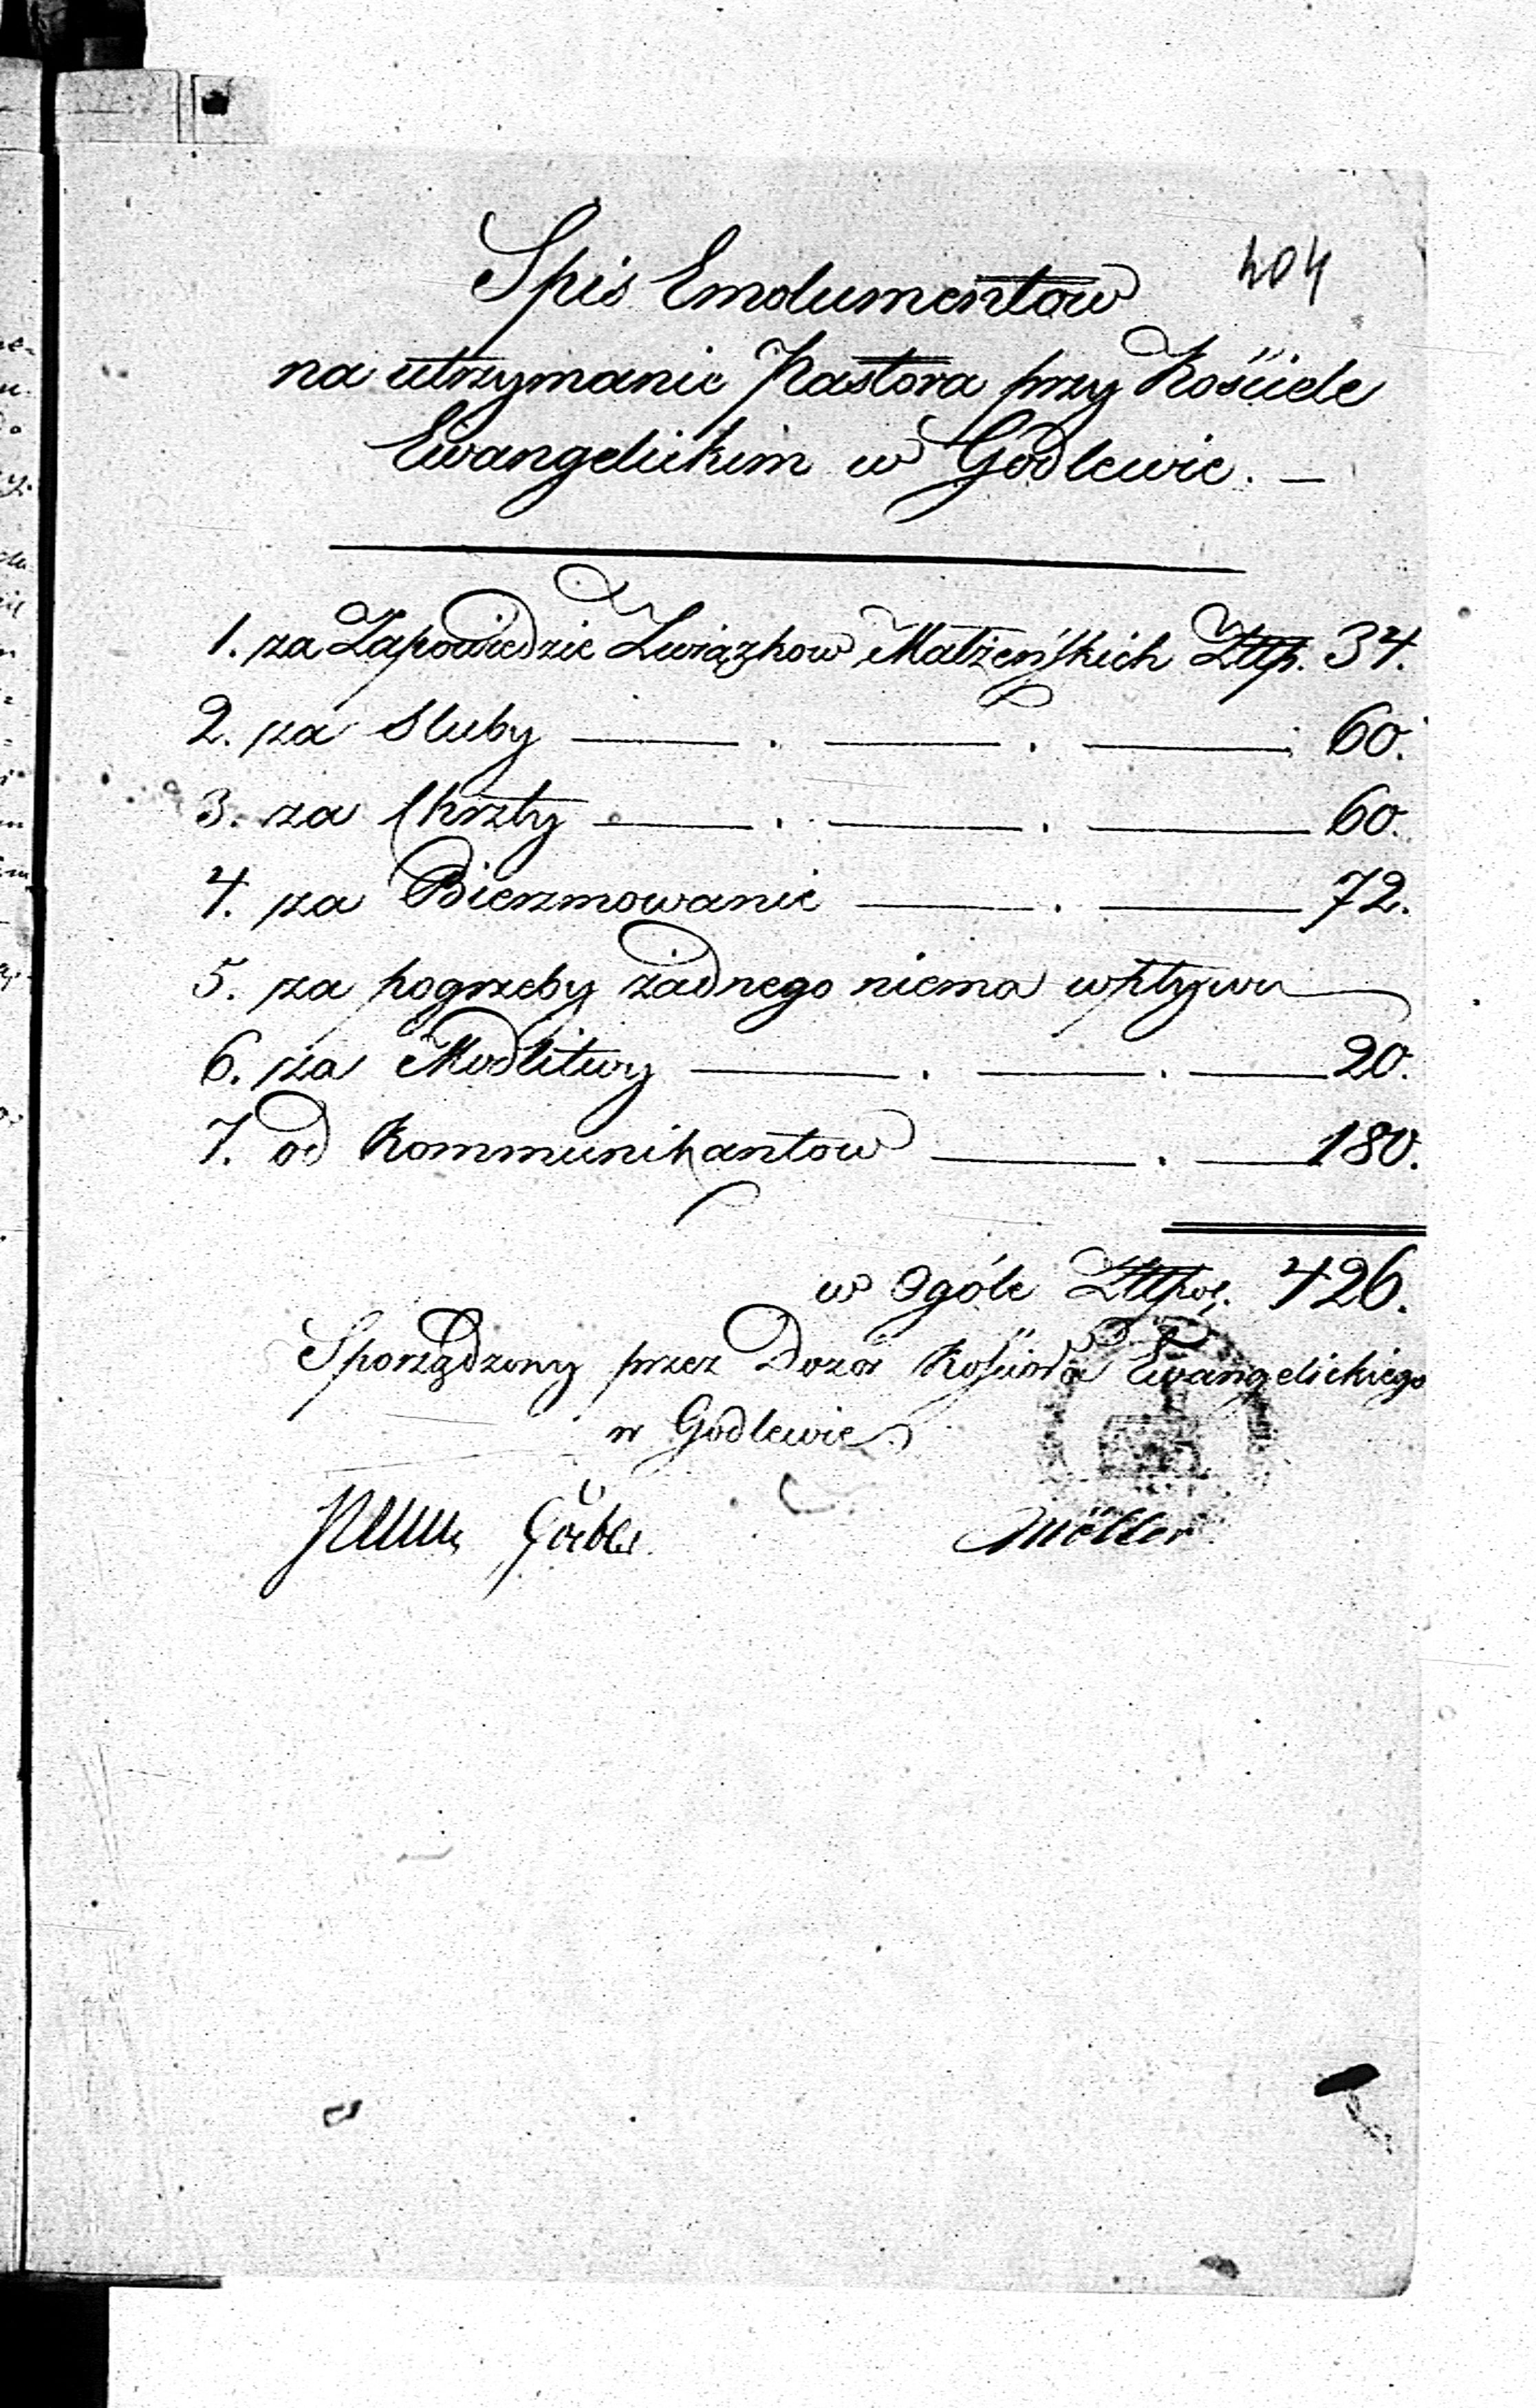 404
Spis Emolumentow
na utrzymanie Pastora przy Kościele
Ewangelickim w Godlewie. —
1. za Zapowiedzie Związkow Małżeńskich Złtp. 34.
2. za Sluby — . — . — 60.
3. za Chrzty — . — . — 60.
4. za Bierzmowanie — . — 72.
5. za pogrzeby żadnego niema wpływu —
6. za Modlitwy — . — . — 20.
7. od Kommunikantow — . — 180.
w Ogóle Złtpol. 426.
Sporządzony przez Dozór Kościoła Ewangelickiego
w Godlewie
Möller